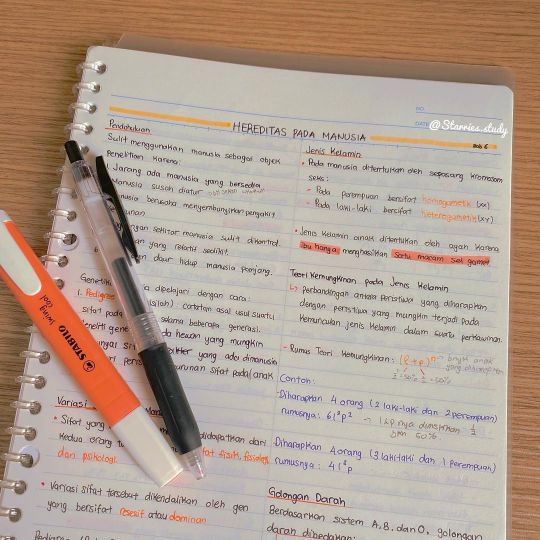 NO.
DATE
@Starries.study
HEREDITAS PADA MANUSIA
Bab 6
Pendahuluan
Sulit menggunakan manusia sebagai objek
penelitian karena:
Jarang ada manusia yang bersedia
Manusia susah diatur
Manusia berusaha menyembunyikan penyakit
faktor manusia sulit dikontrol
yang relatif sedikit
dan daur hidup manusia panjang.
Genetika dipelajari dengan cara:
1. Pedigree (silsilah): catatan asal usul suatu
sifat pada selama beberapa generasi.
pada hewan yang mungkin
yang ada dimanusia
sifat pada anak
Variasi
Sifat yang didapatkan dari
kedua orang sifat fisik, fisiologi
dan psikologi.
Variasi sifat tersebut dikendalikan oleh gen
yang bersifat resesif atau dominan
Jenis Kelamin
Pada manusia ditentukan oleh sepasang kromosom
seks:
- Pada perempuan bersifat homogametik (xx)
- Pada laki-laki bersifat heterogametik (xy)
Jenis kelamin anak ditentukan oleh ayah karena
ibu hanya menghasilkan satu macam sel gamet
Teori Kemungkinan pada Jenis Kelamin
↳ perbandingan antara peristiwa yang diharapkan
dengan peristiwa yang mungkin terjadi pada
kemunculan jenis kelamin dalam suatu perkawinan.
- Rumus Teori Kemungkinan: (l+p)ⁿ → bnyk anak
yang diharapkan
Contoh:
Diharapkan 4 orang (2 laki-laki dan 2 perempuan)
rumusnya: 6l²p² → l & p nya dimisalkan 1/2
Diharapkan 4 orang (3 laki-laki dan 1 perempuan)
rumusnya: 4l³p
Golongan Darah
Berdasarkan sistem A, B, dan O, golongan
darah dibedakan:
STABILO
swing
cool